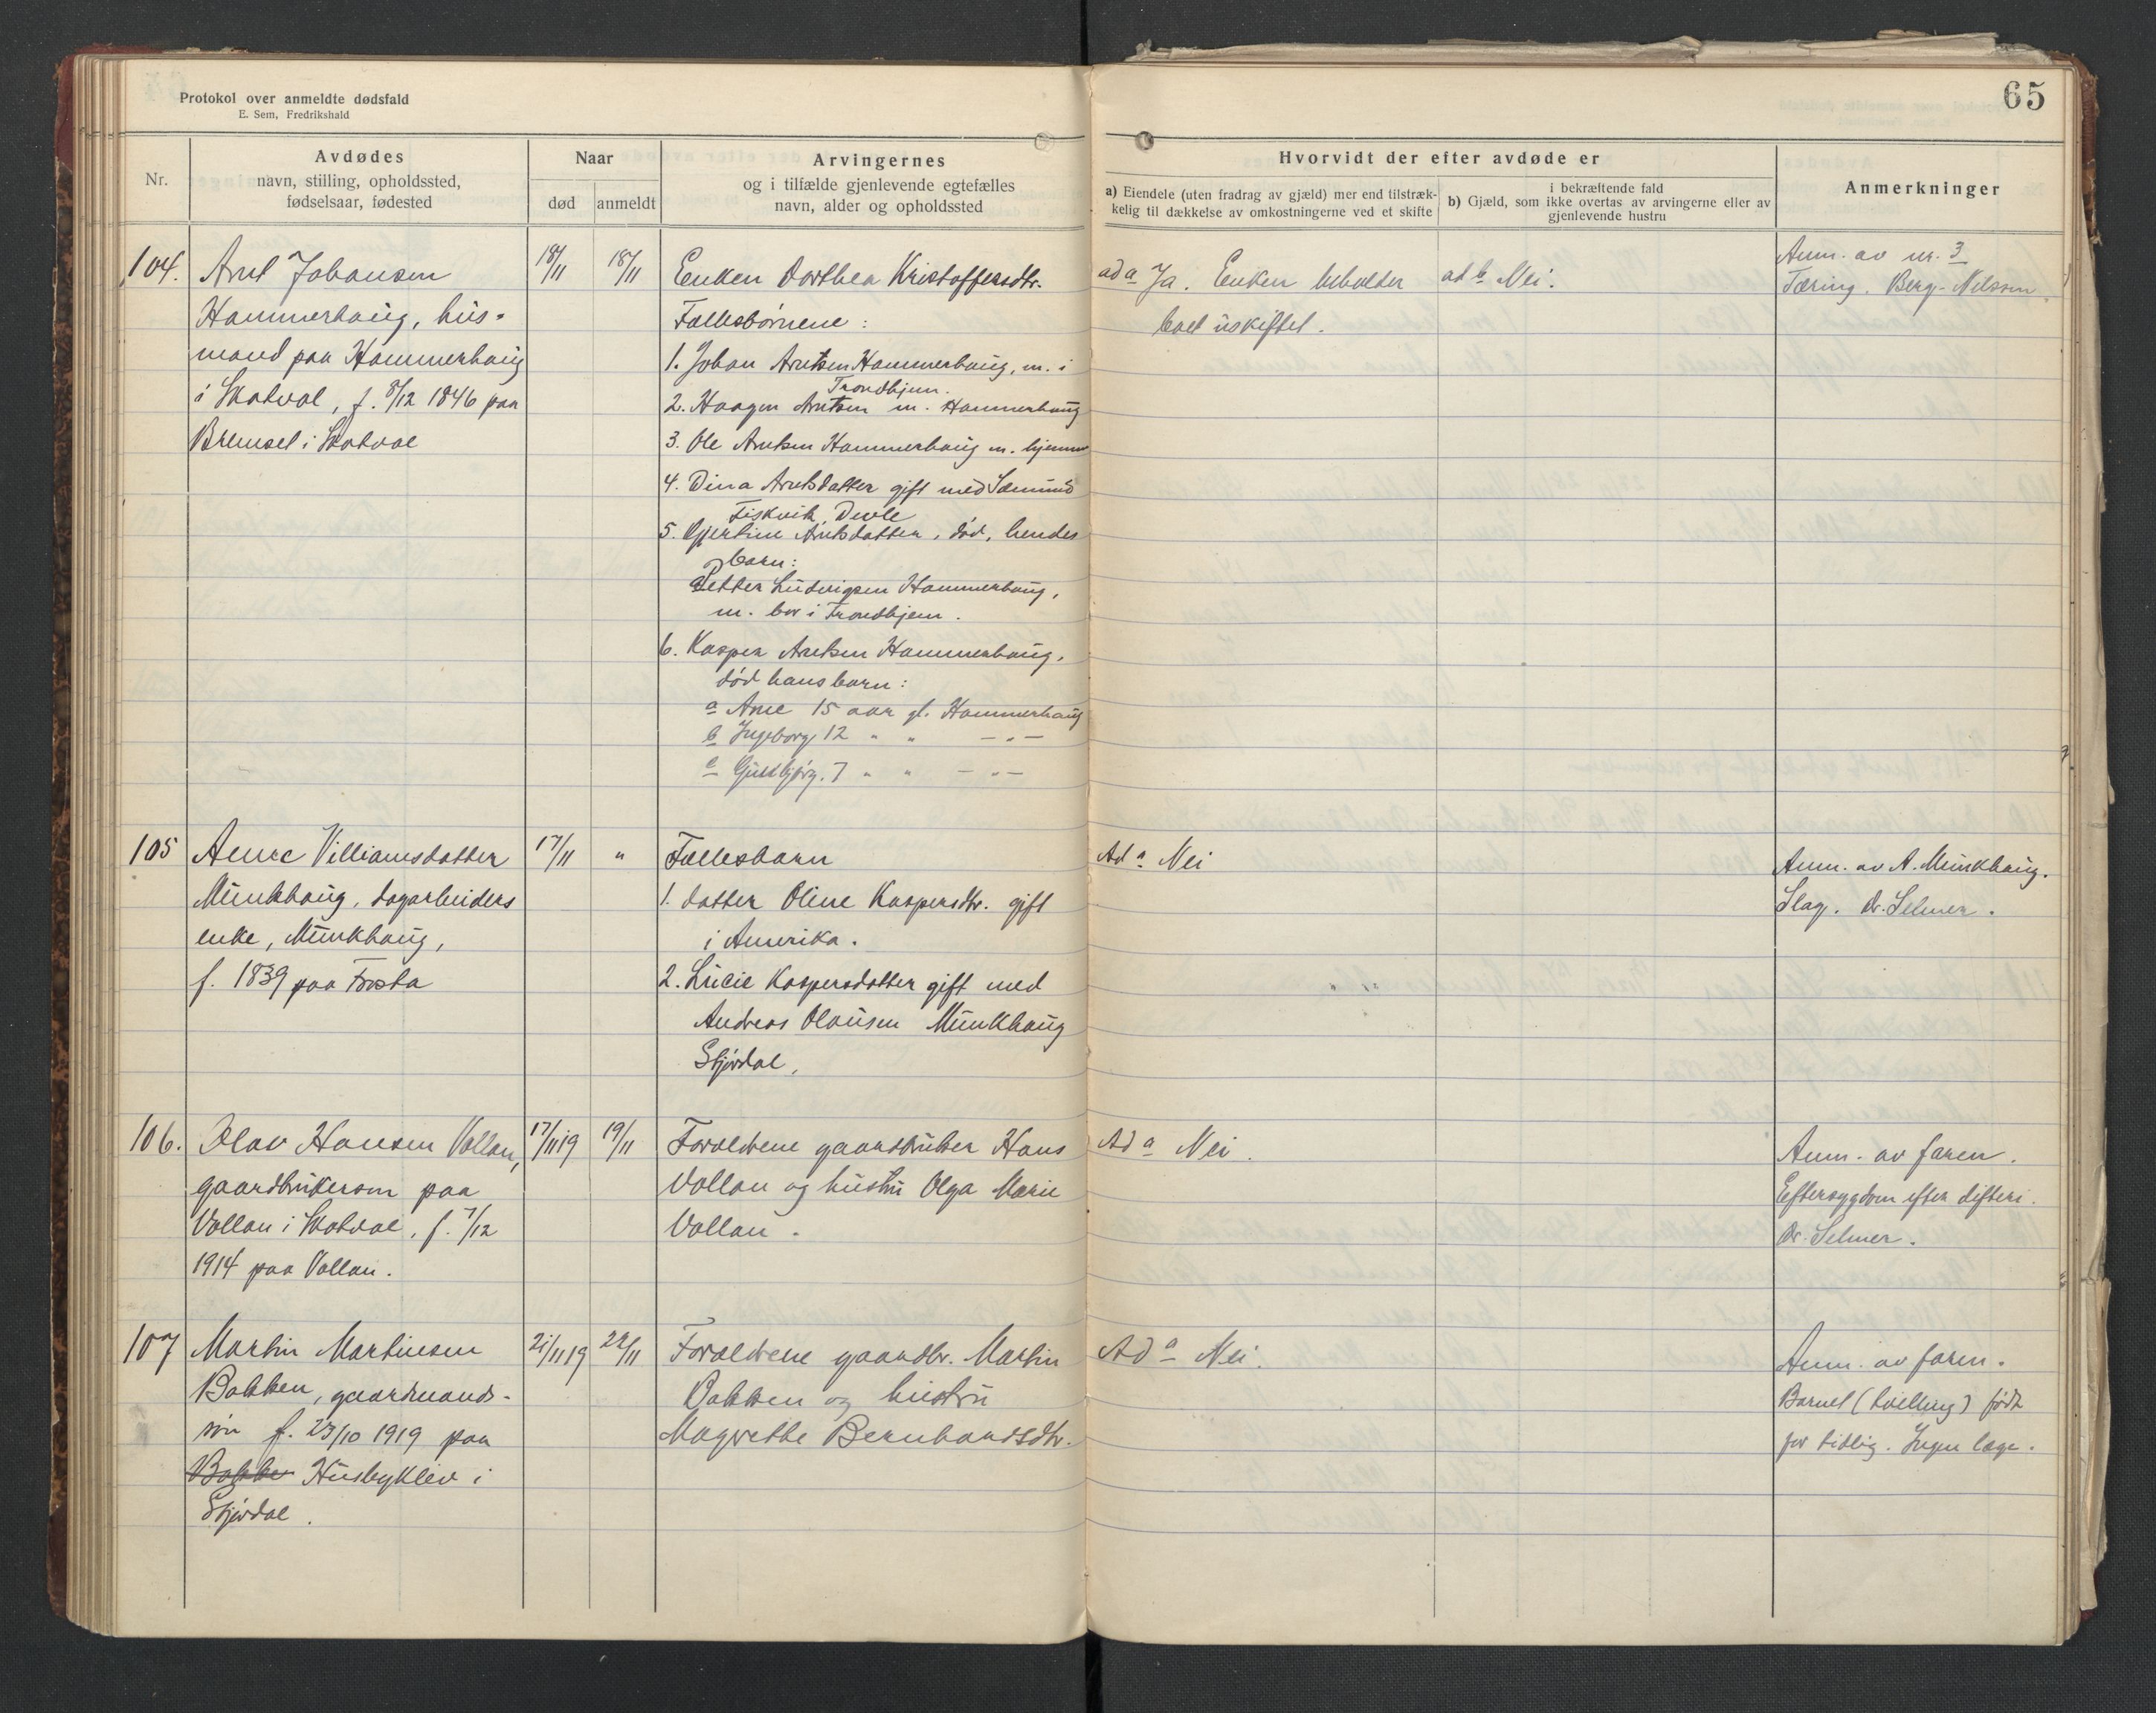 Protokol over anmeldte dødsfald
E. Sem, Fredrikshald
65
Nr.
Avdødes
navn, stilling, opholdssted,
fødselsaar, fødested
Naar
død
anmeldt
Arvingernes
og i tilfælde gjenlevende egtefælles
navn, alder og opholdssted
Hvorvidt der efter avdøde er
a) Eiendele (uten fradrag av gjæld) mer end tilstræk-
kelig til dækkelse av omkostningerne ved et skifte
i bekræftende fald
b) Gjæld, som ikke overtas av arvingerne eller av
gjenlevende hustru
Anmerkninger
104.
Arnt Johansen
Hammerhaug, hus-
mand paa Hammerhaug
i Skatval, f. 8/12 1846 paa
Bremset i Skatval
18/11
18/11
Enken Dorthea Kristoffersdtr.
Fællesbørnene:
1. Johan Arntsen Hammerhaug, m. i
Trondhjem.
2. Haagen Arntsen m. Hammerhaug
3. Ole Arntsen Hammerhaug m. hjemme
4. Dina Arntsdatter gift med
Fiskvik
5. Gjertine Arntsdatter, død, hendes
barn:
Petter Ludvigsen Hammerhaug,
m. bor i Trondhjem.
6. Kasper Arntsen Hammerhaug,
død hans barn:
a Arne 15 aar gl. Hammerhaug
b Ingeborg 12 " " — " —
c Gudbjørg. 7 " " — " —
ad a Ja. Enken beholder
boet uskiftet.
ad b Nei.
Anm. av nr. 3
Tæring. Berg-Nilssen.
105
Anne Villiamsdatter
Munkhaug, dagarbeiders
enke, Munkhaug,
f. 1839 paa Frosta
17/11
"
Fællesbarn
1. datter Oline Kaspersdtr. gift
i Amerika.
2. Lucie Kaspersdatter gift med
Andreas Olausen Munkhaug
Stjørdal.
Ad a Nei
Anm. av A. Munkhaug.
Slag. Dr. Selmer.
106.
Olav Hansen Vollan,
gaardbrukersøn paa
Vollan i Skatval, f. 7/12
1914 paa Vollan.
17/11 19
19/11
Forældrene gaardbruker Hans
Vollan og hustru Olga Marie
Vollan.
Ad a Nei.
Anm. av faren.
Eftersygdom efter difteri.
Dr. Selmer.
107
Martin Martinsen
Bakken, gaardmands-
søn f. 23/10 1919 paa
Bakke Husbyklev i
Stjørdal.
21/11 19
22/11
Forældrene gaardbr. Martin
Bakken og hustru
Magrethe Bernhardsdtr.
Ad a Nei.
Anm. av faren.
Barnet (tvilling) født
for tidlig. Ingen læge.